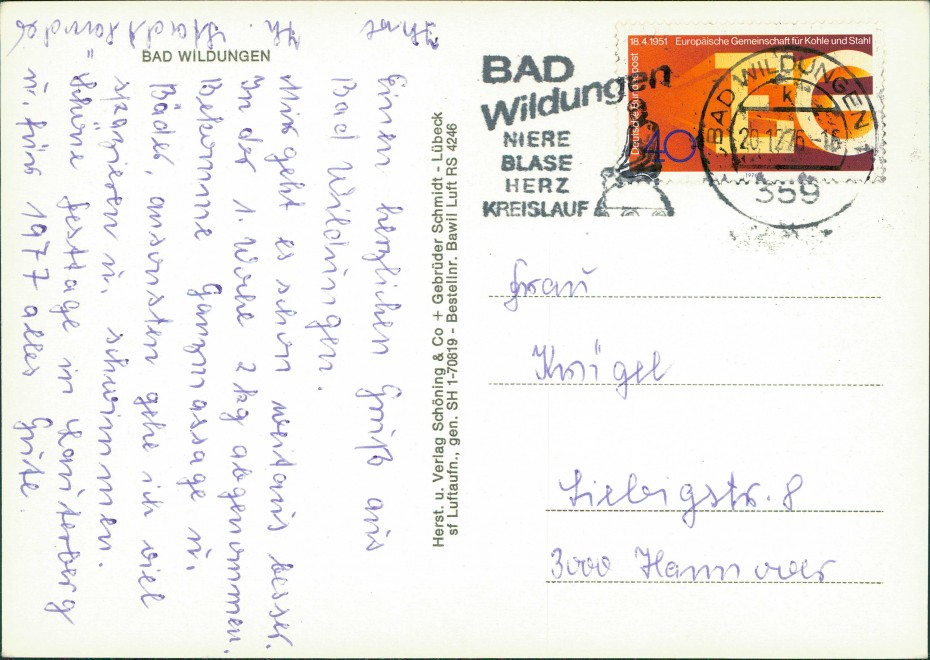 BAD WILDUNGEN
Einen herzlichen Gruß aus
Bad Wildungen.
Mir geht es schon weitaus besser.
In der 1. Woche 2 kg abgenommen.
Bekomme Ganzmassage u.
Bäder, ansonsten gehe ich viel
spazieren u. schwimmen.
Schöne Festtage in Lauterberg
u. fürs 1977 alles Gute
Ihre
Herst. u. Verlag Schöning & Co + Gebrüder Schmidt - Lübeck
sf Luftaufn., gen. SH 1-70819 - Bestellnr. Bawil Luft RS 4246
BAD
Wildungen
NIERE
BLASE
HERZ
KREISLAUF
18.4.1951 Europäische Gemeinschaft für Kohle und Stahl
Deutsche Bundespost
40
1976
BAD WILDUNGEN 1
k
359
Frau
Krügel
Liebigstr. 8
3000 Hannover